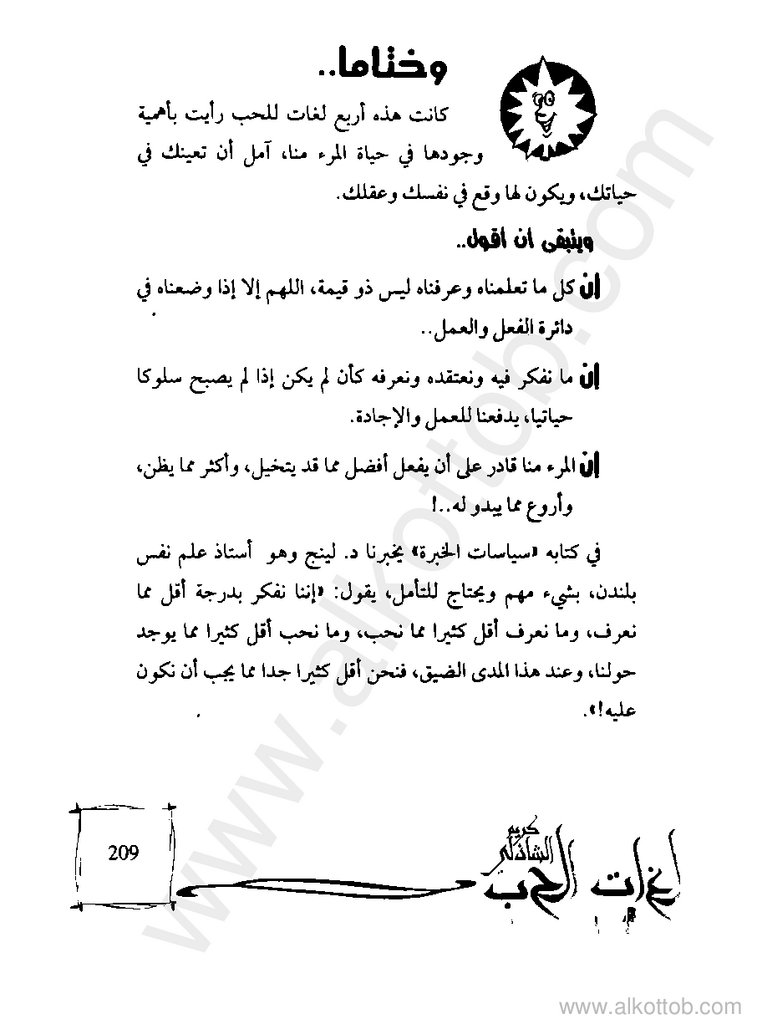 وختاما..
كانت هذه أربع لغات للحب رأيت بأهمية
وجودها في حياة المرء منا، آمل أن تعينك في
حياتك، ويكون لها وقع في نفسك وعقلك.
ويتبقى أن أقول..
إن كل ما تعلمناه وعرفناه ليس ذو قيمة، اللهم إلا إذا وضعناه في
دائرة الفعل والعمل..
إن ما نفكر فيه ونعتقده ونعرفه كأن لم يكن إذا لم يصبح سلوكا
حياتيا، يدفعنا للعمل والإجادة.
إن المرء منا قادر على أن يفعل أفضل مما قد يتخيل، وأكثر مما يظن،
وأروع مما يبدو له..!
في كتابه «سياسات الخبرة» يخبرنا د. لينج وهو أستاذ علم نفس
بلندن، بشيء مهم ويحتاج للتأمل، يقول: «إننا نفكر بدرجة أقل مما
نعرف، وما نعرف أقل كثيرا مما نحب، وما نحب أقل كثيرا مما يوجد
حولنا، وعند هذا المدى الضيق، فنحن أقل كثيرا جدا مما يجب أن نكون
عليه!».
كريم
الشاذلي
لغات الحب
209
www.alkottob.com
www.alkottob.com